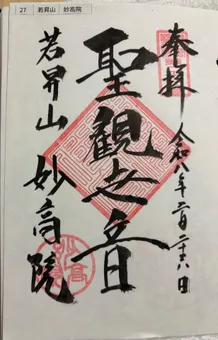 27 若昇山 妙高院
奉拝
令和八年二月二十八日
聖観世音
若昇山 妙高院